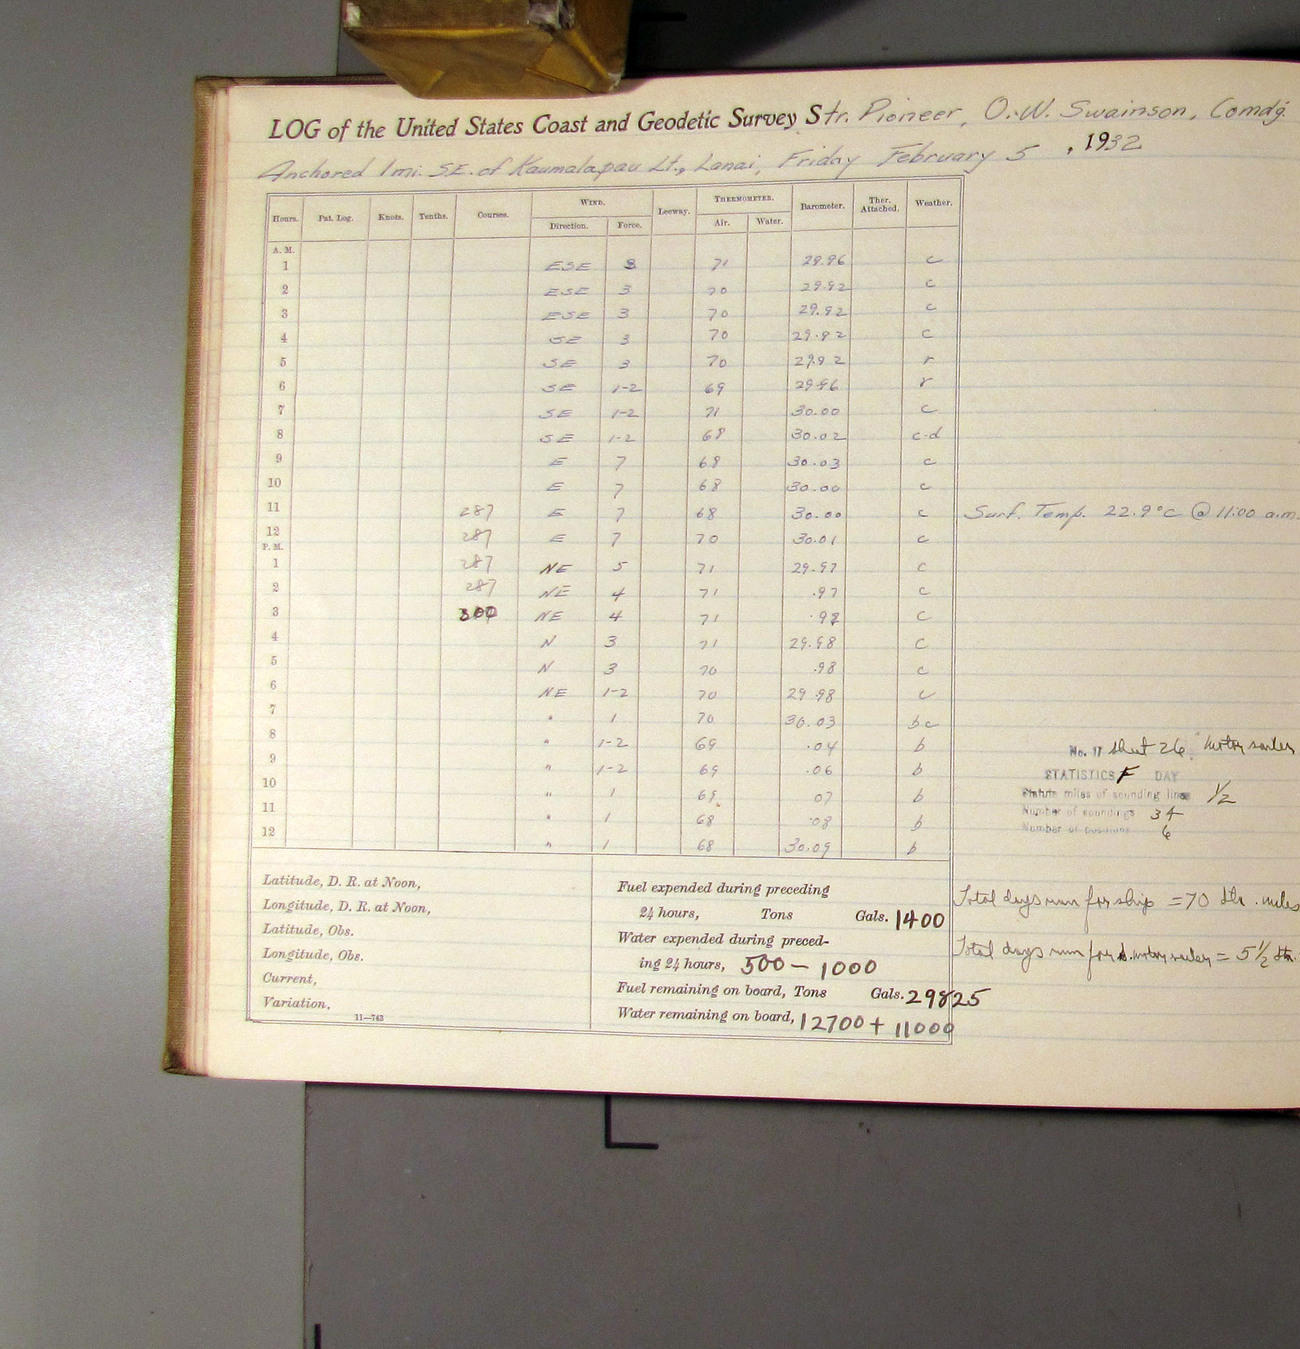 LOG of the United States Coast and Geodetic Survey Str. Pioneer, O.W. Swainson, Comdg.
Anchored 1 mi. SE. of Kaumalapau Lt., Lanai, Friday February 5, 1932
Hours. Pat. Log. Knots. Tenths. Courses. WIND. Direction. Force. Leeway. THERMOMETER. Air. Water. Barometer. Ther. Attached. Weather.
A. M.
1 ESE 3 71 29.96 c
2 ESE 3 70 29.92 c
3 ESE 3 70 29.92 c
4 SE 3 70 29.92 c
5 SE 3 70 29.92 r
6 SE 1-2 69 29.96 r
7 SE 1-2 71 30.00 c
8 SE 1-2 68 30.02 c-d
9 E 7 68 30.03 c
10 E 7 68 30.00 c
11 287 E 7 68 30.00 c Surf. Temp. 22.9°C @ 11:00 a.m.
12 287 E 7 70 30.01 c
P. M.
1 287 NE 5 71 29.97 c
2 287 NE 4 71 .97 c
3 300 NE 4 71 .98 c
4 N 3 71 29.98 c
5 N 3 70 .98 c
6 NE 1-2 70 29.98 c
7 " 1 70 30.03 bc
8 " 1-2 69 .04 b
9 " 1-2 69 .06 b
10 " 1 69 07 b
11 " 1 68 .08 b
12 " 1 68 30.09 b
No. 11 Sheet 26 Motor sailer
STATISTICS F DAY
Statute miles of sounding lines 1/2
Number of soundings 34
Number of positions 6
Latitude, D. R. at Noon,
Longitude, D. R. at Noon,
Latitude, Obs.
Longitude, Obs.
Current,
Variation,
11—743
Fuel expended during preceding
24 hours, Tons Gals. 1400
Water expended during preced-
ing 24 hours, 500 - 1000
Fuel remaining on board, Tons Gals. 29825
Water remaining on board, 12700 + 11000
Total days run for ship = 70 sta. miles
Total days run for motor sailer = 5 1/2 sta.